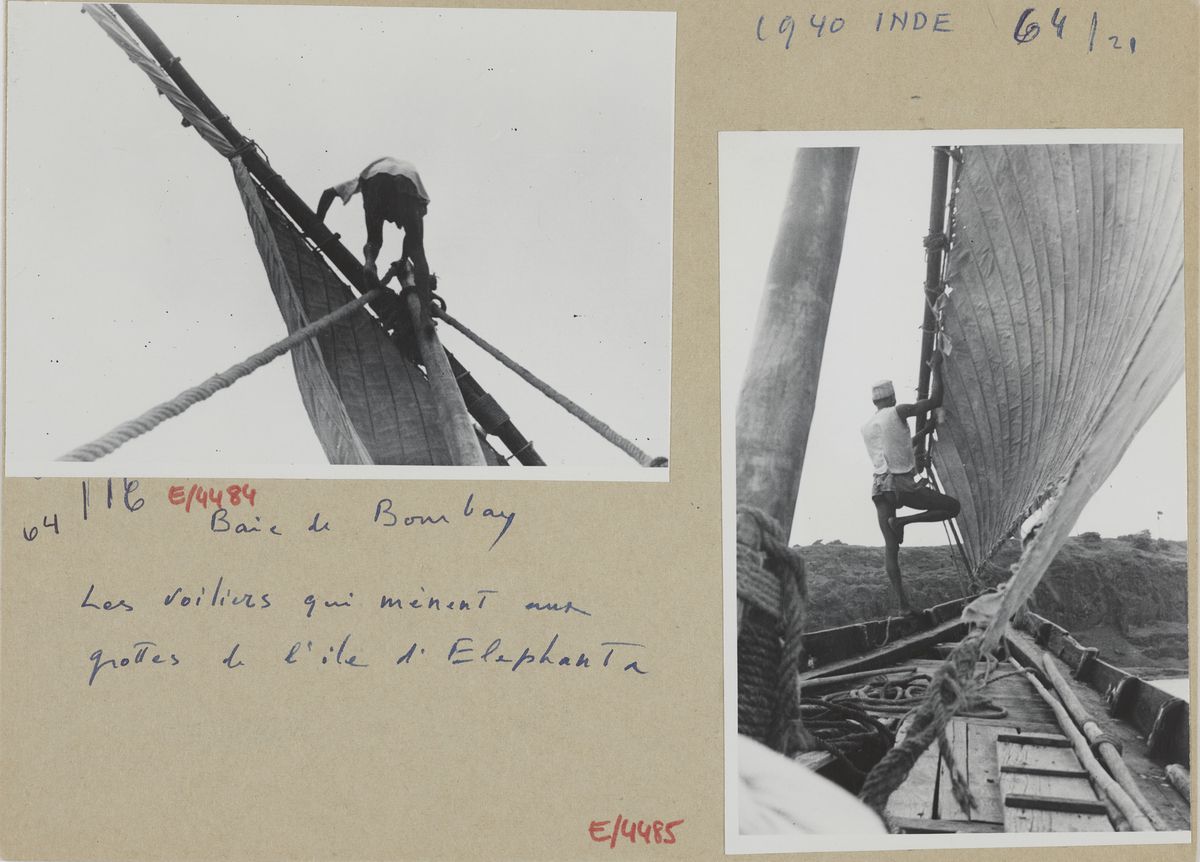 1940 INDE 64/21
64/16 E/4484
Baie de Bombay
Les voiliers qui mènent aux
grottes de l'île d'Elephanta
E/4485